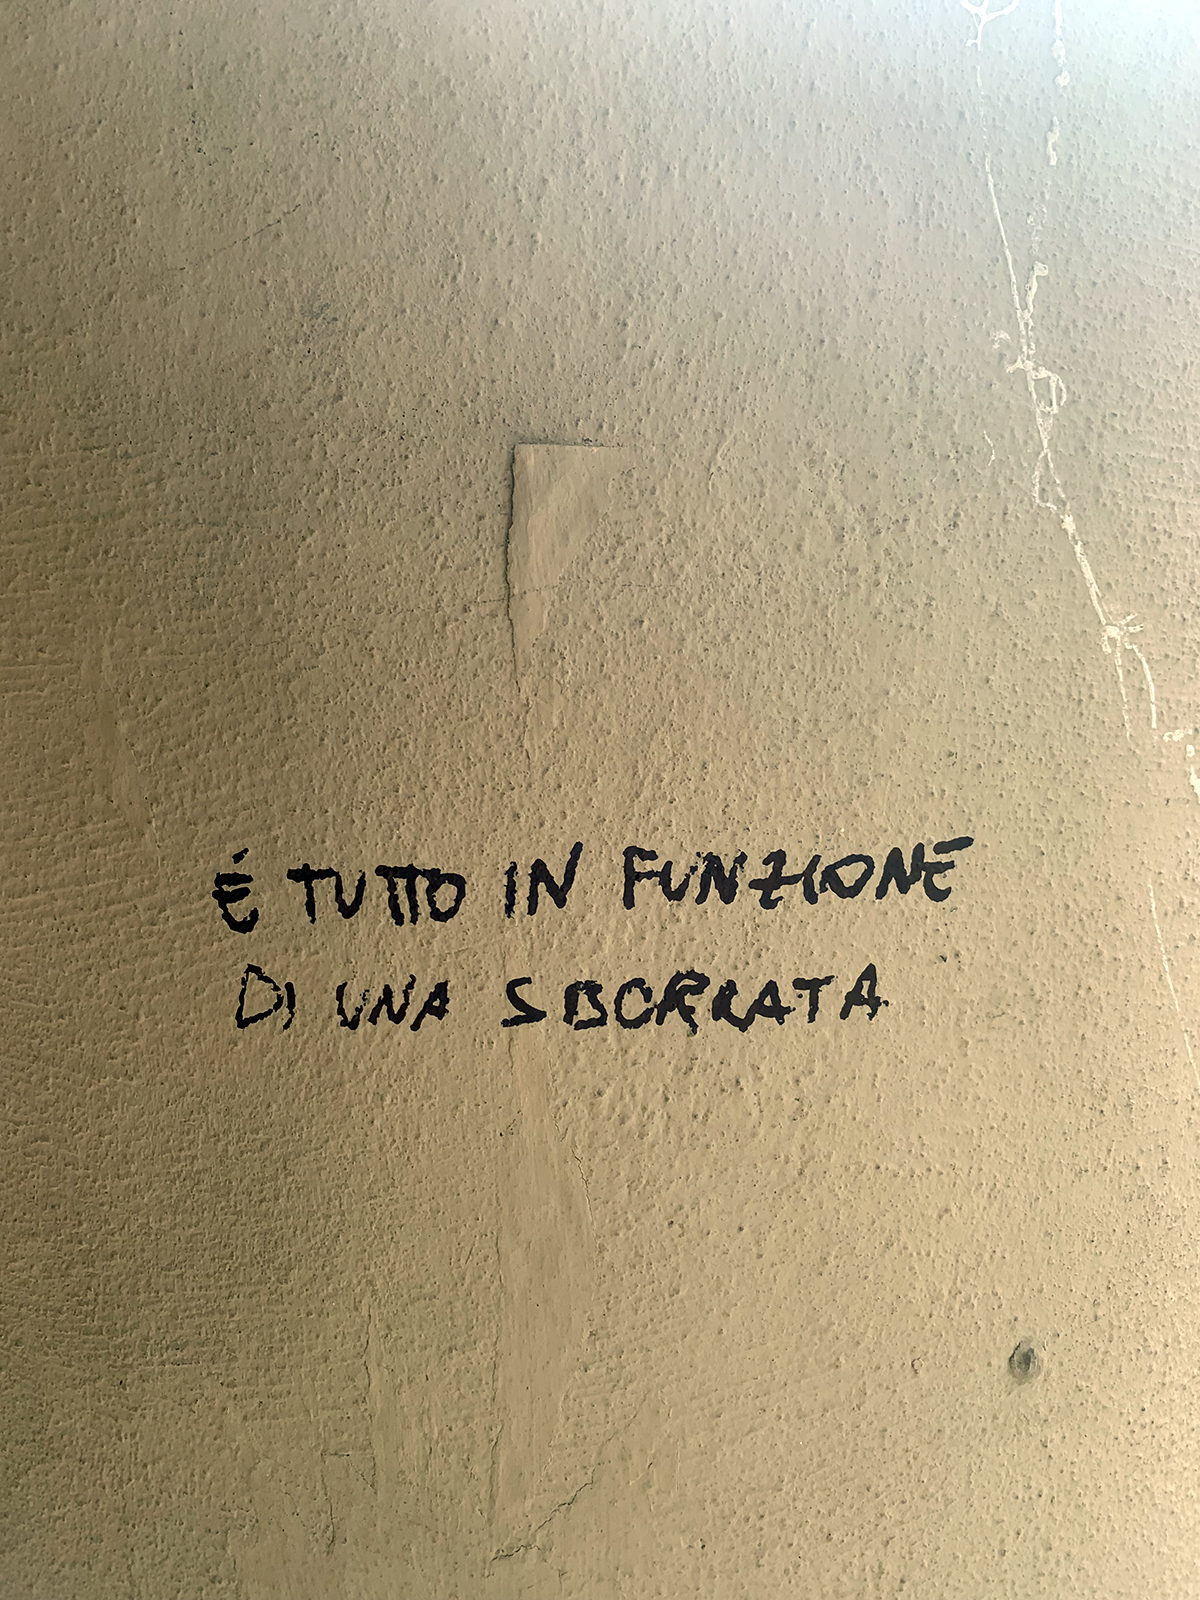 É TUTTO IN FUNZIONE
DI UNA SBORRATA